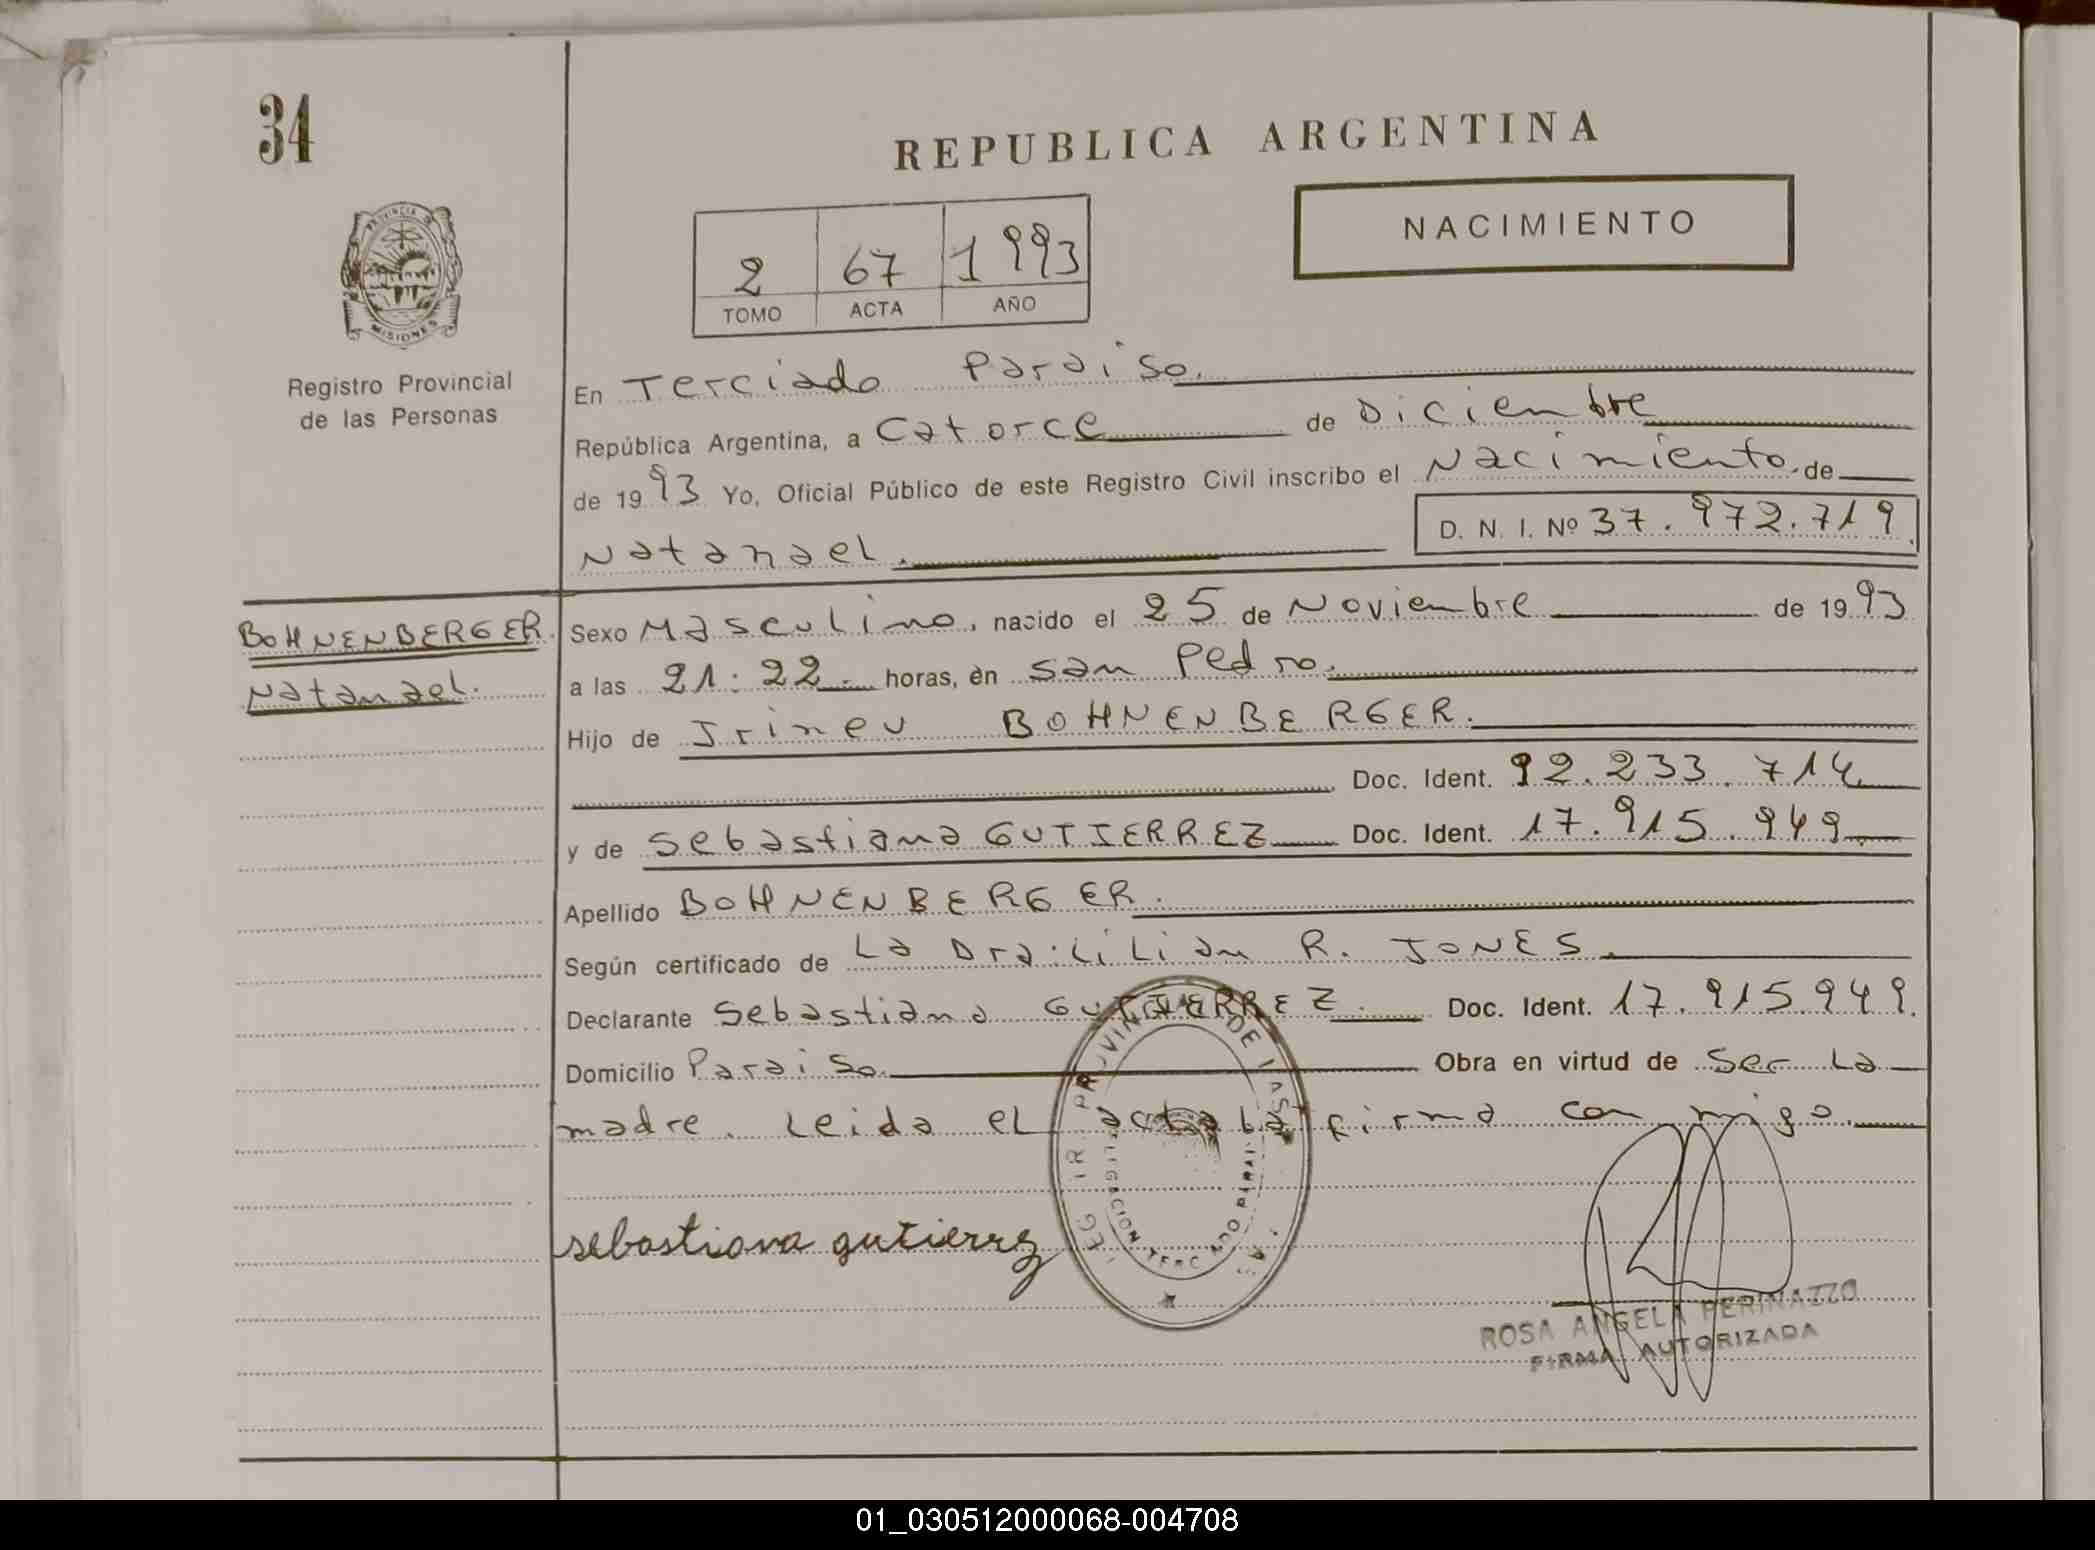 34
REPUBLICA ARGENTINA
NACIMIENTO
2 67 1993
TOMO ACTA AÑO
PROVINCIA DE
MISIONES
Registro Provincial
de las Personas
En Terciado Paraiso.
República Argentina, a Catorce de Diciembre
de 1993 Yo, Oficial Público de este Registro Civil inscribo el Nacimiento de
D. N. I. Nº 37.972.719.
Natanael.
BOHNENBERGER.
Natanael.
Sexo Masculino, nacido el 25 de Noviembre de 1993
a las 21:22. horas, en San Pedro.
Hijo de Irineu BOHNENBERGER.
Doc. Ident. 92.233.714
y de Sebastiana GUTIERREZ Doc. Ident. 17.915.949
Apellido BOHNENBERGER.
Según certificado de La Dra. Lilian R. JONES.
Declarante Sebastiana GUTIERREZ. Doc. Ident. 17.915.949.
Domicilio Paraiso. Obra en virtud de Ser La
madre. Leida el acta La firma con migo.
sebastiana gutierrez
ROSA ANGELA PERINAZZO
FIRMA AUTORIZADA
01_030512000068-004708